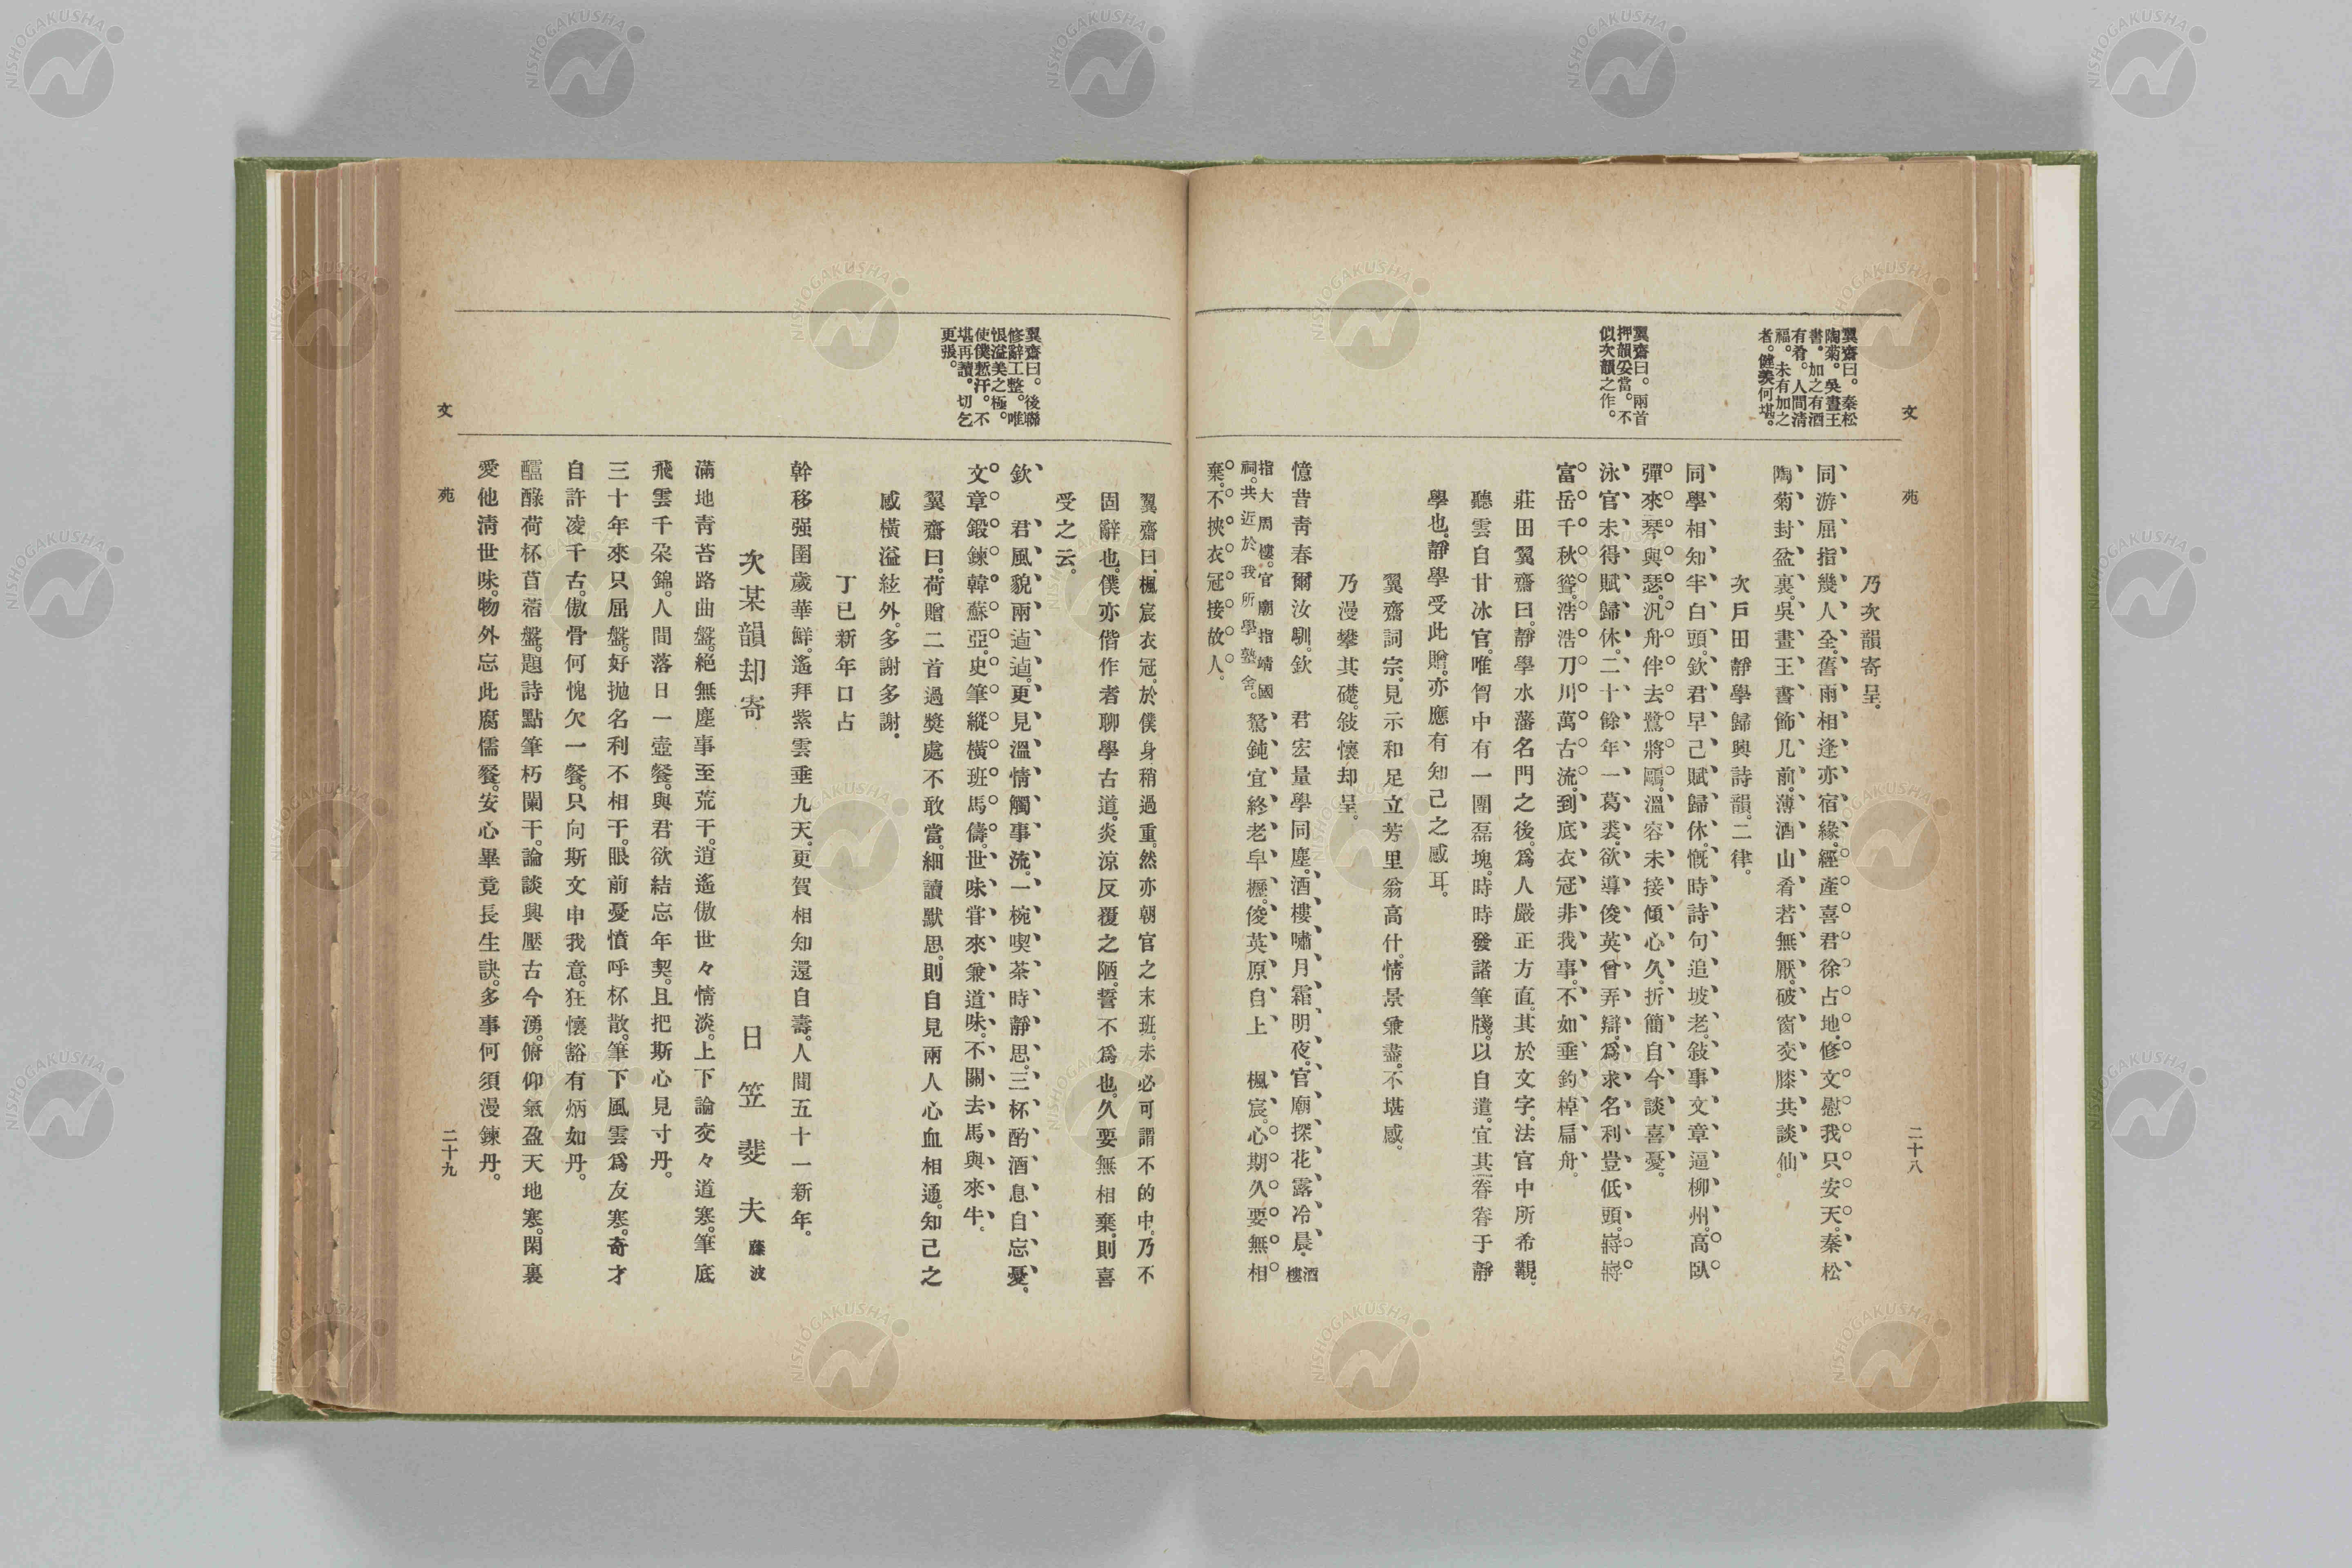 文
苑
二十八
翼齋曰。秦松
陶菊。吳畫王
書。加之有酒
有肴。人間淸
福。未有加之
者。健羨何堪。
翼齋曰。兩首
押韻妥當。不
似次韻之作。
乃次韻寄呈。
同游屈指幾人全。舊雨相逢亦宿緣。經產喜君徐占地。修文慰我只安天。秦松
陶菊封盆裏。吳畫王書飾几前。薄酒山肴若無厭。破窗交膝共談仙。
次戶田靜學歸興詩韻。二律。
同學相知半白頭。欽君早已賦歸休。慨時詩句追坡老。敍事文章逼柳州。高臥
彈來琴與瑟。汎舟伴去鷺將鷗。溫容未接傾心久。折簡自今談喜憂。
泳官未得賦歸休。二十餘年一葛裘。欲導俊英曾弄辯。爲求名利豈低頭。嶈嶈
富岳千秋聳。浩浩刀川萬古流。到底衣冠非我事。不如垂釣棹扁舟。
莊田翼齋曰。靜學水藩名門之後。爲人嚴正方直。其於文字。法官中所希覯。
聽雲自甘冰官。唯胷中有一團磊塊。時時發諸筆牋。以自遣。宜其眷眷于靜
學也。靜學受此贈。亦應有知己之感耳。
翼齋詞宗。見示和足立芳里翁高什。情景兼盡。不堪感。
乃漫攀其礎。敍懷却呈。
憶昔靑春爾汝馴。欽　君宏量學同塵。酒樓嘯月霜明夜。官廟探花露冷晨。酒樓
指大周樓。官廟指靖國
祠。共近於我所學塾舍。
駑鈍宜終老皁櫪。俊英原自上　楓宸。心期久要無相
棄。不挾衣冠接故人。
翼齋曰。後聯
修辭工整。唯
恨溢美之極。
使僕慙汗。不
堪再讀。切乞
更張。
翼齋曰。楓宸衣冠。於僕身稍過重。然亦朝官之末班。未必可謂不的中。乃不
固辭也。僕亦偕作者聊學古道。炎涼反覆之陋。誓不爲也。久要無相棄。則喜
受之云。
欽　君風貌兩遒遒。更見溫情觸事流。一椀喫茶時靜思。三杯酌酒息自忘憂。
文章鍛鍊韓蘇亞。史筆縱橫班馬儔。世味甞來兼道味。不關去馬與來牛。
翼齋曰。荷贈二首過獎處不敢當。細讀默思。則自見兩人心血相通。知己之
感橫溢紘外。多謝多謝。
丁巳新年口占
幹移强圉歲華鮮。遙拜紫雲垂九天。更賀相知還自壽。人間五十一新年。
次某韻却寄
日笠斐夫 藤波
滿地靑苔路曲盤。絕無塵事至荒干。逍遙傲世々情淡。上下論交々道寒。筆底
飛雲千朶錦。人間落日一壺餐。與君欲結忘年契。且把斯心見寸丹。
三十年來只屈盤。好抛名利不相干。眼前憂憤呼杯散。筆下風雲爲友寒。奇才
自許凌千古。傲骨何愧欠一餐。只向斯文申我意。狂懷豁有炳如丹。
醽醁荷杯苜蓿盤。題詩點筆朽闌干。論談興壓古今湧。俯仰氣盈天地寒。閑裏
愛他淸世味。物外忘此腐儒餐。安心畢竟長生訣。多事何須漫鍊丹。
文
苑
二十九